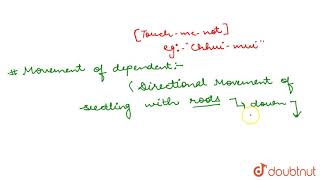 [Touch-me-not]
eg:- "Chhui-mui"
# Movement of dependent:-
(Directional Movement of
seedling with roots ↳ down ↓
doubtnut